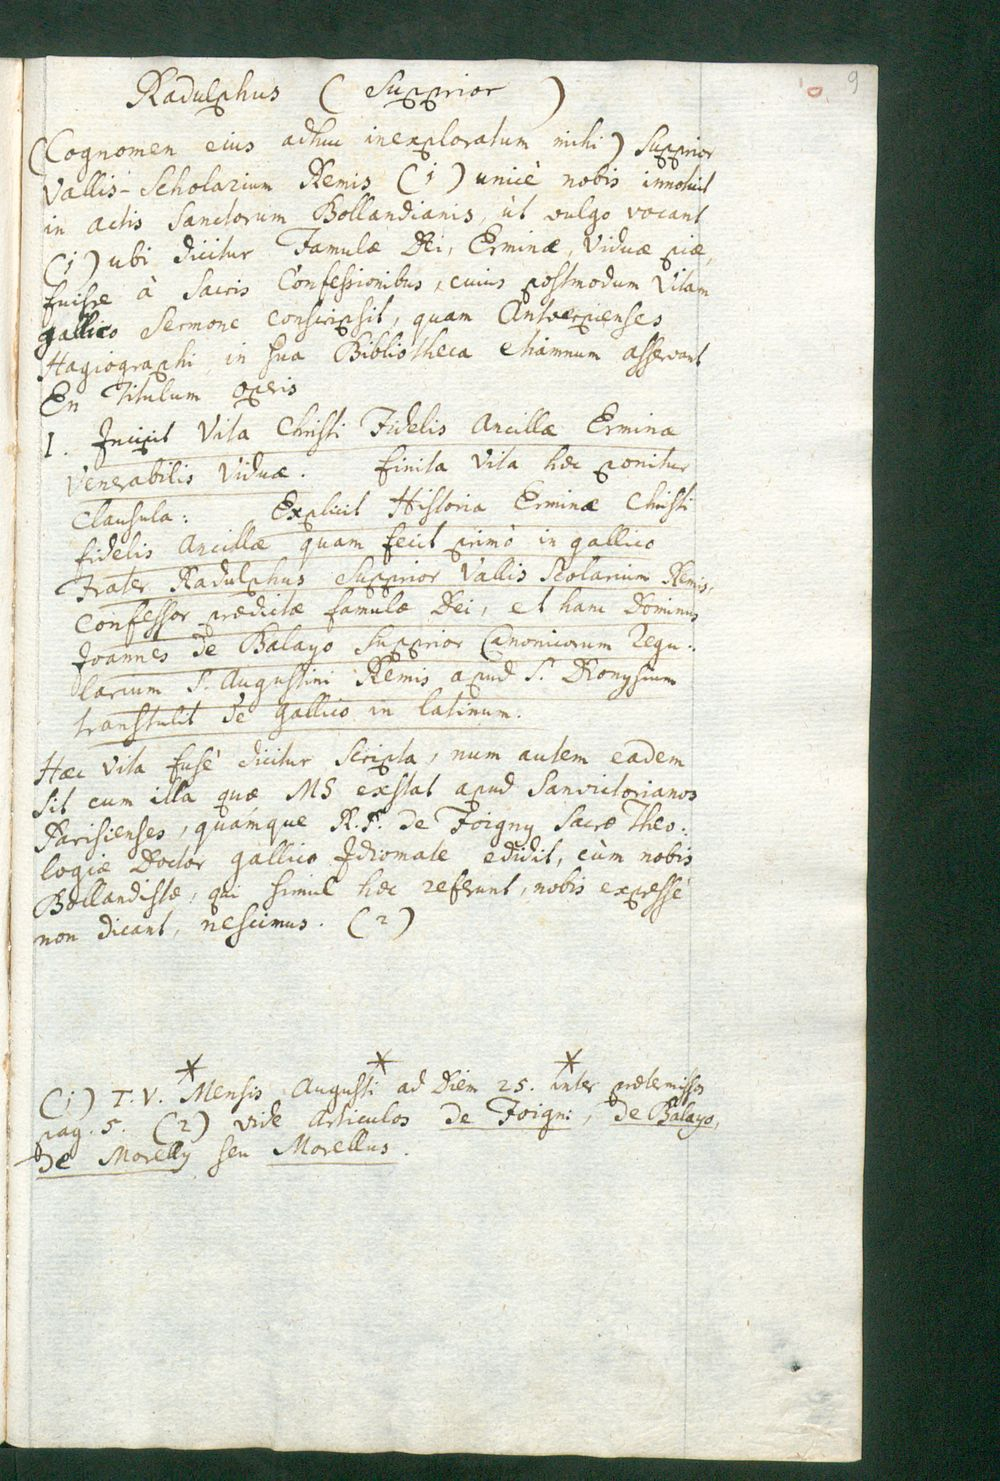 9
Radulphus (Supprior)
(Cognomen eius adhuc inexploratum mihi) Supprior
Vallis-Scholarium Remis (1) unicè nobis innotuit
in actis Sanctorum Bollandianis, ùt vulgo vocant
(1) ubi dicitur Famulæ Dei, Erminæ, Viduæ piæ,
fuisse à Sacris Confessionibus, cuius postmodum Vitam
gallico Sermone conscripsit, quam Antverpienses
Hagiographi in sua Bibliotheca etiamnum asservant
En Titulum operis
I. Incipit Vita Christi Fidelis Ancillæ Erminæ
Venerabilis Viduæ. finita Vita hæc ponitur
Clausula: Explicit Historia Erminæ Christi
fidelis Ancillæ quam fecit primò in gallico
Frater Radulphus Supprior Vallis Scolarium Remis,
Confessor prædictæ famulæ Dei, et hanc Dominus
Joannes de Balayo Supprior Canonicorum Regu-
larium S. Augustini Remis apud S. Dionysium
transtulit de gallico in latinum.
Hæc Vita fusè dicitur scripta, num autem eadem
sit cum illa quæ MS exstat apud Sanvictorianos
Parisienses, quamque R.P. de Foigny Sacræ Theo-
logiæ Doctor gallico Idiomate edidit, cùm nobis
Bollandistæ, qui simul hæc referunt, nobis expressè
non dicant, nescimus. (2)
* * *
(1) T.V. Mensis Augusti ad Diem 25. inter prætermissos
pag. 5. (2) vide Articulos de Foigni, de Balayo,
de Morelly seu Morellus.